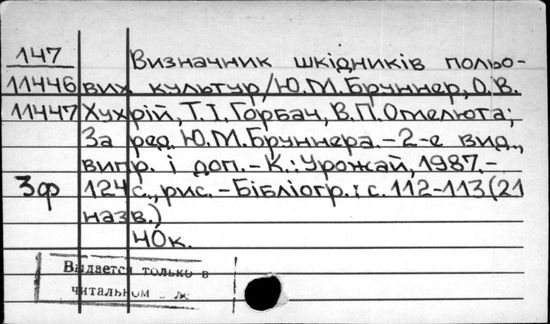 147 Визначник шкідників польо-
11446 вих культур/Ю.М.Бруннер, О.В.
11447 Хухрій, Т.І.Горбач, В.П.Омелюта;
За ред. Ю.М.Бруннера.-2-е вид.,
випр. і доп.-К.:Урожай, 1987.-
3ф 124с., рис.-Бібліогр.: с. 112-113(21
назв.)
40к.
Выдается только в
читальном